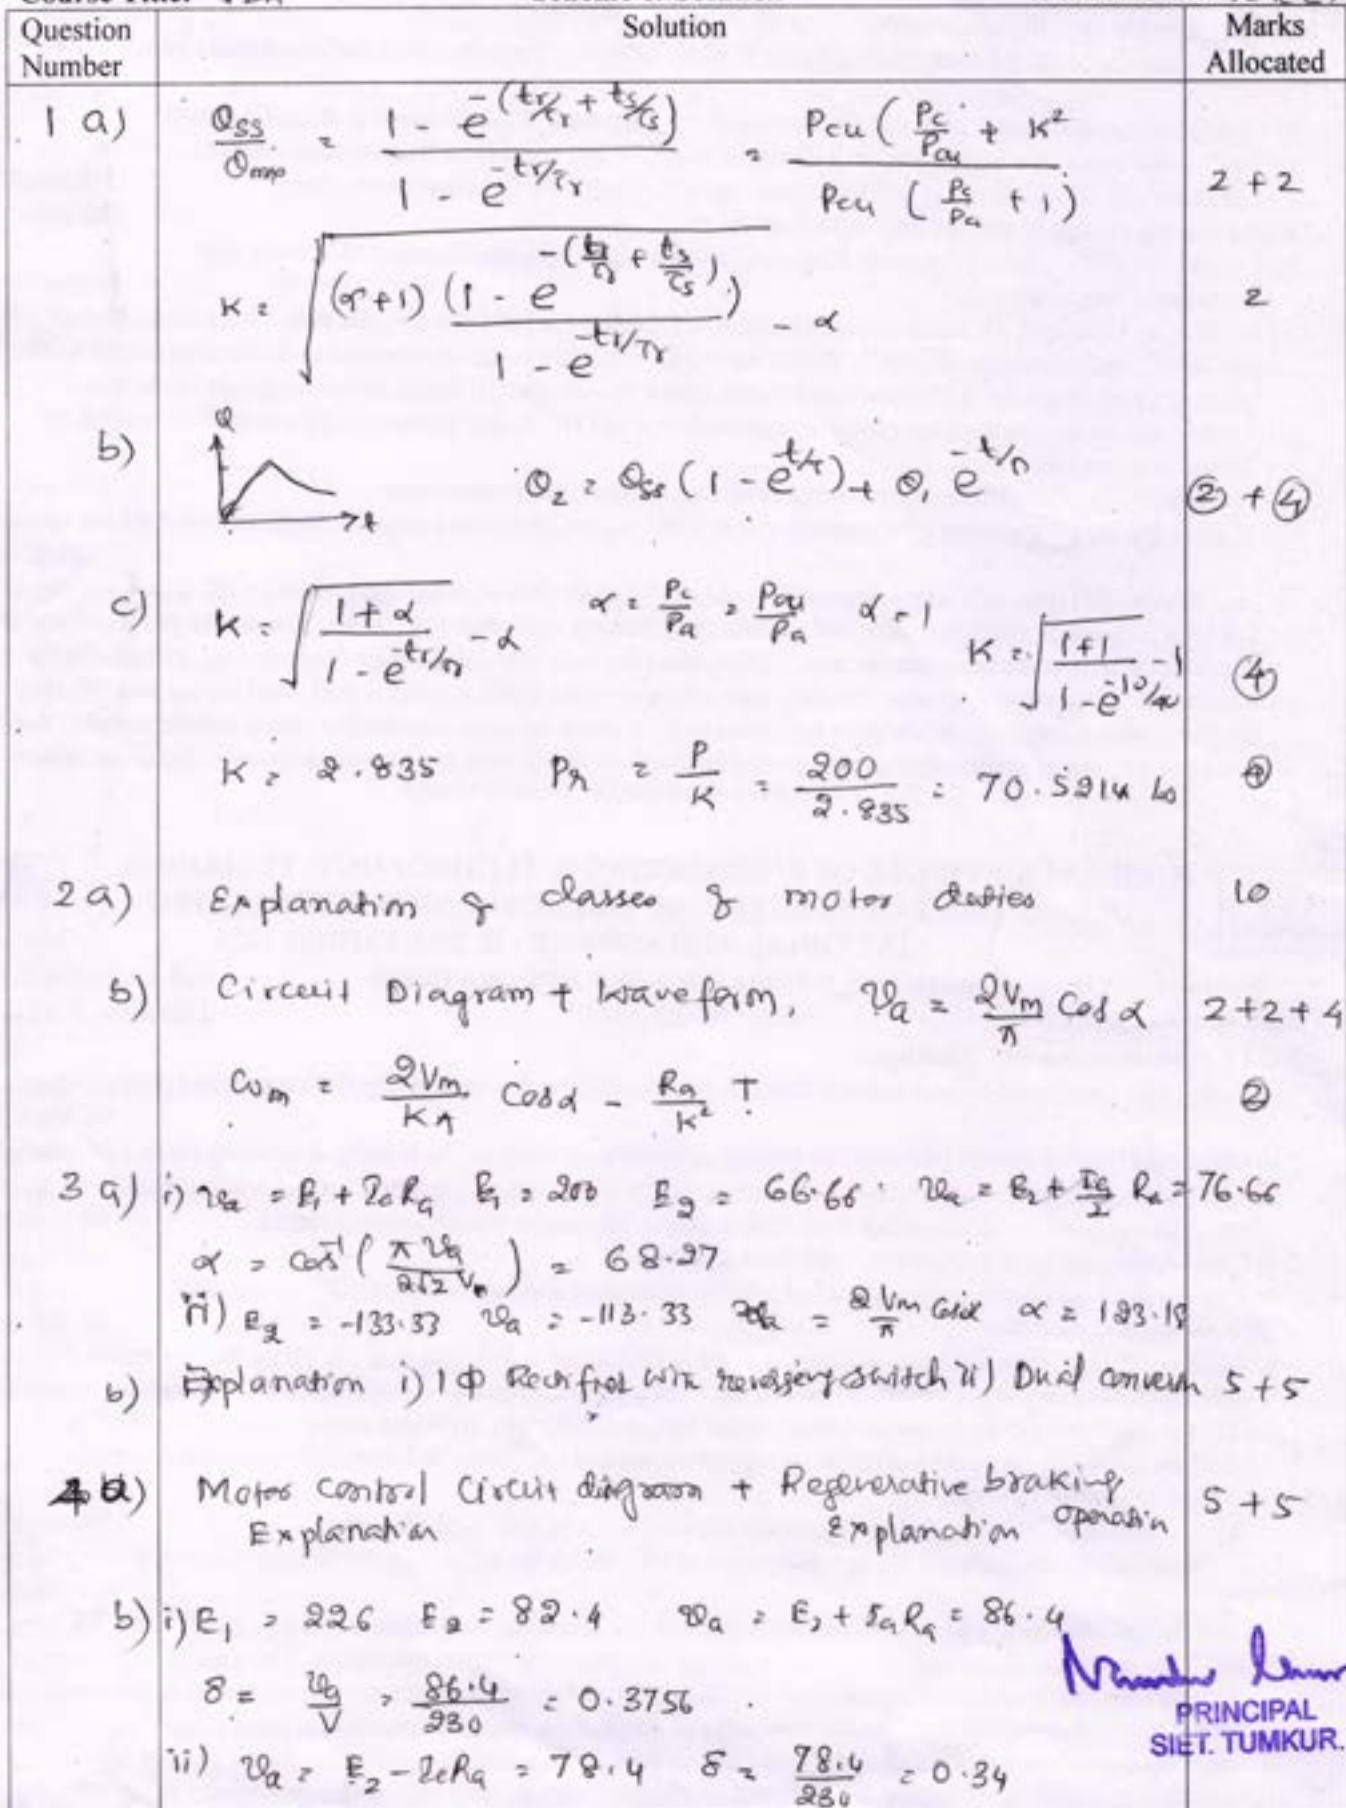 Question Number
Solution
Marks Allocated
1 a) θss/θmp = (1 - e^-(tr/τr + ts/τs)) / (1 - e^-tr/τr) = Pcu (Pc/Pcu + K² / Pcu (Pc/Pcu + 1) 2 + 2
K = √((α+1) (1 - e^-(tr/τr + ts/τs)) / (1 - e^-tr/τr) - α) 2
b) θ t θ2 = θss (1 - e^t/τ) + θ1 e^-t/τ ② + ④
c) K = √((1 + α) / (1 - e^-tr/τr) - α) α = Pc/Pa = Pcu/Pa α = 1 K = √((1+1) / (1 - e^-10/40) - 1) ④
K = 2.835 PR = P/K = 200/2.835 = 70.5214
2 a) Explanation of classes of motor duties 10
b) Circuit Diagram + Waveform, Va = 2Vm/π Cos α 2+2+4
ωm = 2Vm/Kπ Cosα - Ra/K² T ②
3 a) i) Va = E1 + IaRa E1 = 200 E2 = 66.66 Va = E2 + Ia/2 Ra = 76.66
α = Cos⁻¹(πVa / 2√2 Vm) = 68.27
ii) E2 = -133.33 Va = -113.33 Va = 2Vm/π Cosα α = 123.18
b) Explanation i) 1ϕ Rectifier with reversing switch ii) Dual convertr 5 + 5
4 a) Motor Control Circuit diagram + Regenerative braking operation 5 + 5
Explanation Explanation
b) i) E1 = 226 E2 = 82.4 Va = E2 + IaRa = 86.4
δ = Va/V = 86.4/230 = 0.3756
PRINCIPAL
SIET. TUMKUR.
ii) Va = E2 - IaRa = 78.4 δ = 78.4/230 = 0.34